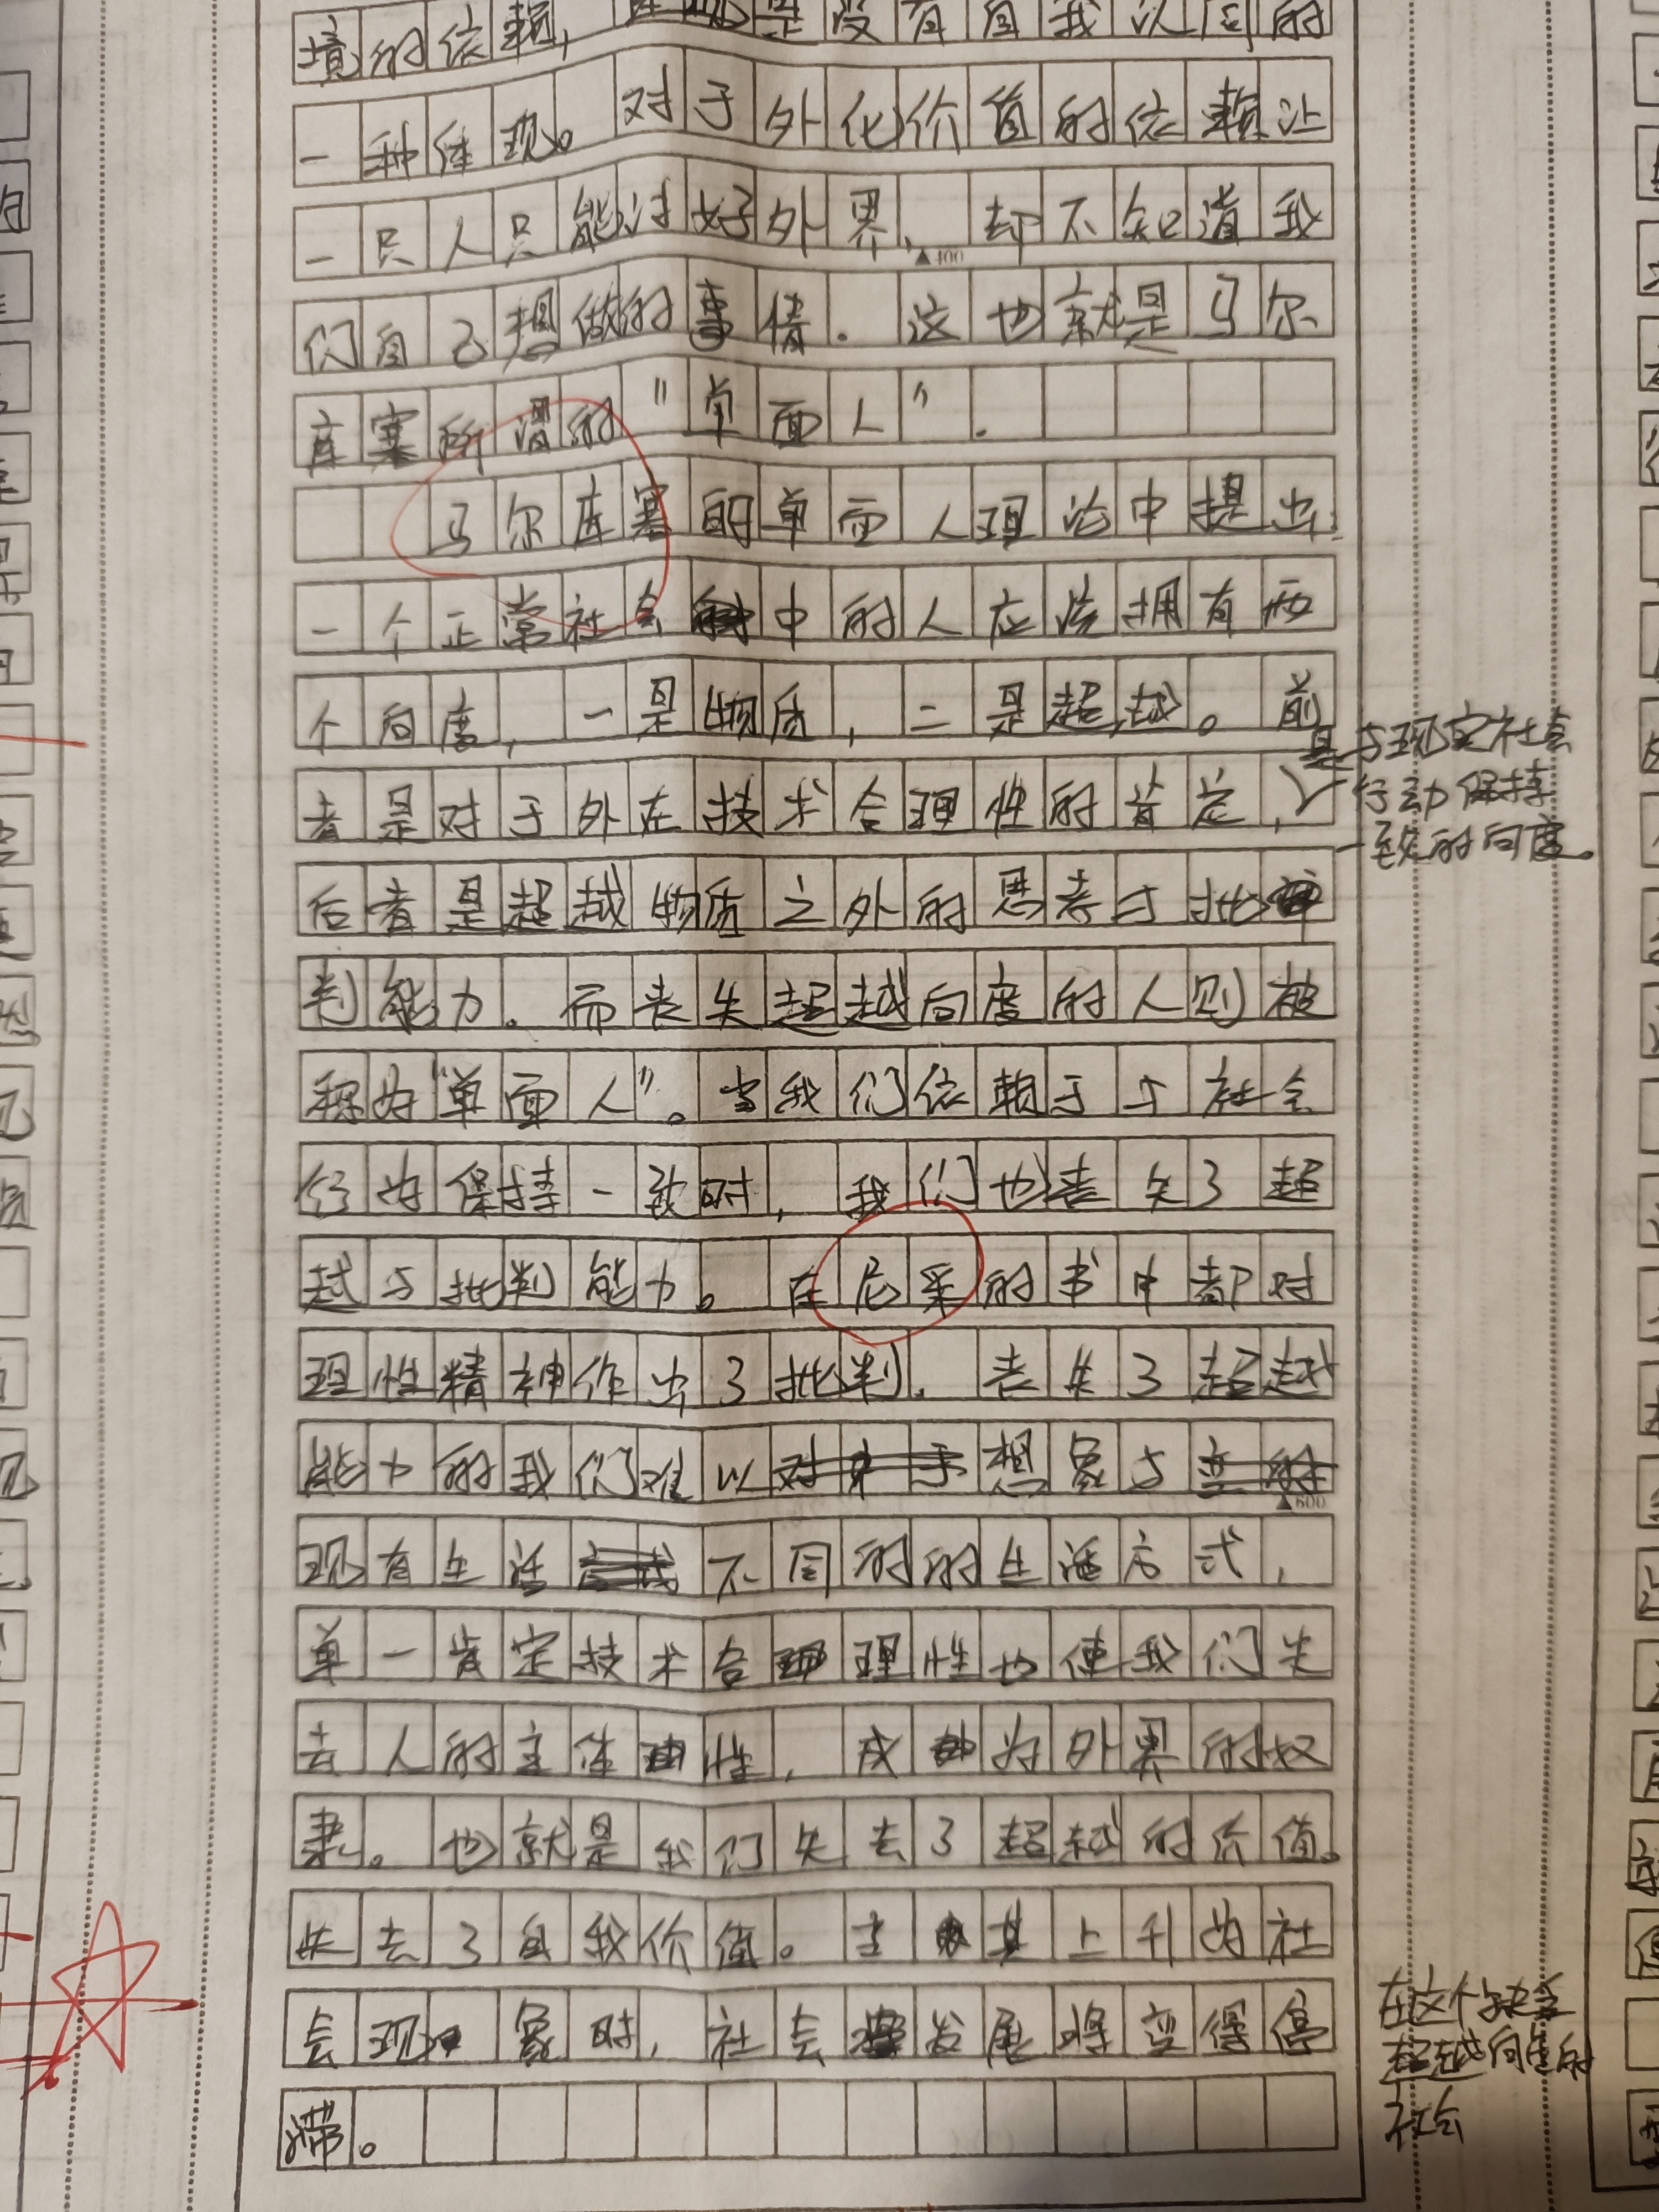 境的依赖，是没有自我认同的
一种体现。对于外化价值的依赖让
一只人只能讨好外界，却不知道我
▲400
们自己想做的事情．这也就是马尔
库塞所谓的"单面人"．
马尔库塞的单面人理论中提出：
一个正常社会中的人应该拥有两
个向度，一是物质，二是超越。前
者是对于外在技术合理性的肯定，
是与现实社会
行动保持
一致的向度。
后者是超越物质之外的思考与批
判能力．而丧失超越向度的人则被
称为"单面人"。当我们依赖于与社会
行为保持一致时，我们也丧失了超
越与批判能力。在尼采的书中都对
理性精神作出了批判．丧失了超越
能力的我们难以想象与
▲600
现有生活不同的的生活方式，
单一肯定技术合理性也使我们失
去人的主体性，成为外界的奴
隶。也就是我们失去了超越的价值。
失去了自我价值。当其上升为社
会现象时，社会发展将变得停
滞。
在这个缺乏
超越向度的
社会